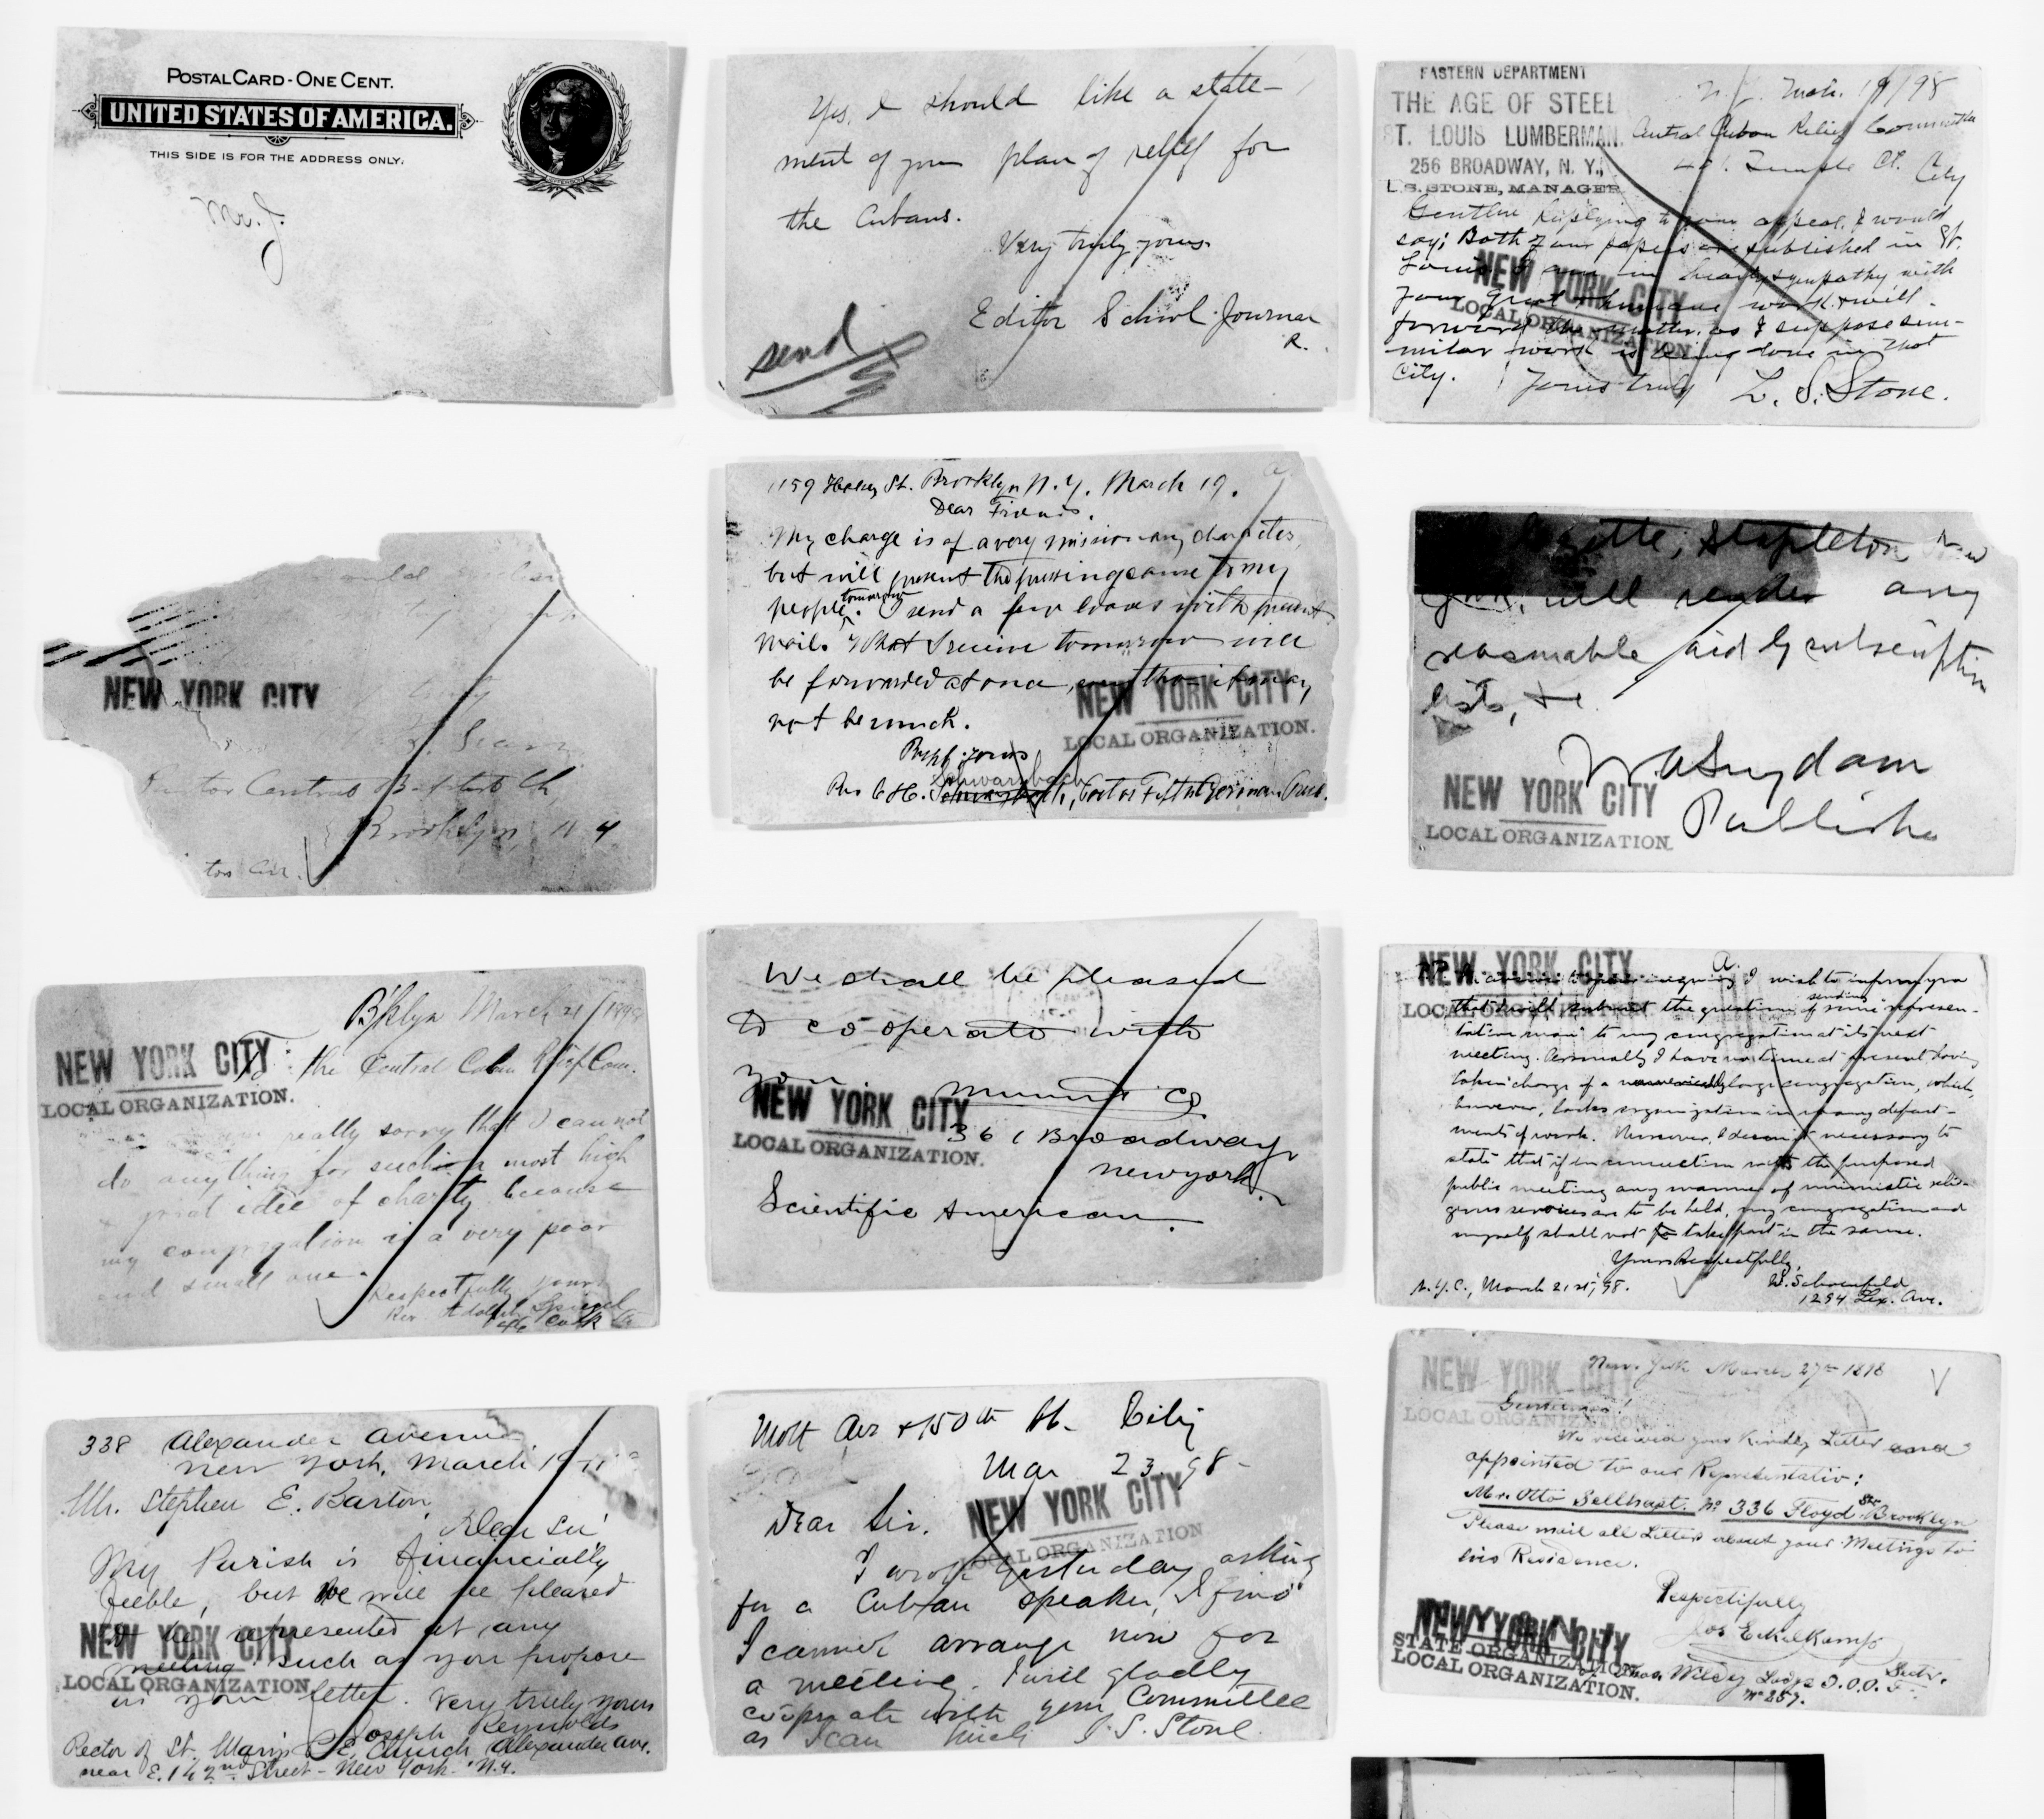 POSTAL CARD - ONE CENT.
UNITED STATES OF AMERICA.
THIS SIDE IS FOR THE ADDRESS ONLY.
Mr. J.
Yes, I should like a state-
ment of your plan of relief for
the Cubans.
Very truly yours.
Editor School Journal
R.
send
EASTERN DEPARTMENT
THE AGE OF STEEL
ST. LOUIS LUMBERMAN.
256 BROADWAY, N. Y.,
L. S. STONE, MANAGER
N.Y. Mch. 19/98
Central Cuban Relief Committee
Temple Ct. City
Gentlm Replying to your appeal, I would
say; Both of our papers are published in St.
Louis. I am in hearty sympathy with
your great & humane work & will
forward the matter, as I suppose sim-
milar work is being done in that
City. Yours truly L. S. Stone.
NEW YORK CITY
LOCAL ORGANIZATION.
NEW YORK CITY
Pastor Central Baptist Ch
Brooklyn, N Y
1159 St. Brooklyn N.Y. March 19.
Dear Friends.
My charge is of a very missionary character,
but will present the pressing cause to my
people tomorrow. I send a few with present
mail. What I receive tomorrow will
be forwarded at once, even tho it may
not be much.
Respf. yours
Rev C. H. Schwarzbach, Pastor German Pres.
NEW YORK CITY
LOCAL ORGANIZATION.
Gazette, Stapleton New
York, will render any
reasonable aid by subscription
lists, &c.
Publisher
NEW YORK CITY
LOCAL ORGANIZATION.
B'klyn March 21/1898
To the Central Cuban Relief Com.
NEW YORK CITY
LOCAL ORGANIZATION.
really sorry that I cannot
do anything for such a most high
& great idee of charity because
my congregation is a very poor
and small one.
Respectfully yours
Rev. Adolph Spiegel
We shall be pleased
to co-operate with
you. Munn & Co.
361 Broadway
New york.
Scientific American.
NEW YORK CITY
LOCAL ORGANIZATION.
NEW YORK CITY
LOCAL ORGANIZATION.
A.
inquiry I wish to inform you
that I will submit the question of sending some represen-
tative man to my congregation at its next
meeting. Personally I have no time at present having
taken charge of a numerically large congregation, which,
however, lacks organization in many depart-
ments of work. Moreover, I deem it necessary to
state that if in connection with the proposed
public meeting any manner of unionistic reli-
gious services are to be held, my congregation and
myself shall not take part in the same.
Yours Respectfully,
N.Y.C., March 21st, '98. W. Schoenfeld
1294 Lex. Ave.
338 Alexander Avenue
New York, March 19
Mr. Stephen E. Barton,
Dear Sir
My Parish is financially
feeble, but we will be pleased
to be represented at any
meeting such as you propose
in your letter. Very truly yours
Joseph Reynolds
Rector of St. Mary's P. E. Church Alexander Ave.
near E. 142nd Street - New York N.Y.
NEW YORK CITY
LOCAL ORGANIZATION.
Mott Ave & 150th St. City
Mar 23 98-
Dear Sir.
NEW YORK CITY
LOCAL ORGANIZATION
I wrote yesterday asking
for a Cuban speaker, I find
I cannot arrange now for
a meeting. I will gladly
cooperate with your Committee
as I can. I. S. Stone.
New York March 27th 1898
NEW YORK CITY
LOCAL ORGANIZATION.
Gentlemen!
We received your kindly Letter and
appointed to our Representativ:
Mr. Otto Sellhast. No 336 Floyd Str. Brooklyn
Please mail all Letters about your Meetings to
his Residence.
Respectifully
Jos Eckelkamp
Secty.
Wildey Lodge I.O.O.F.
No 257.
NEW YORK CITY
STATE ORGANIZATION.
LOCAL ORGANIZATION.